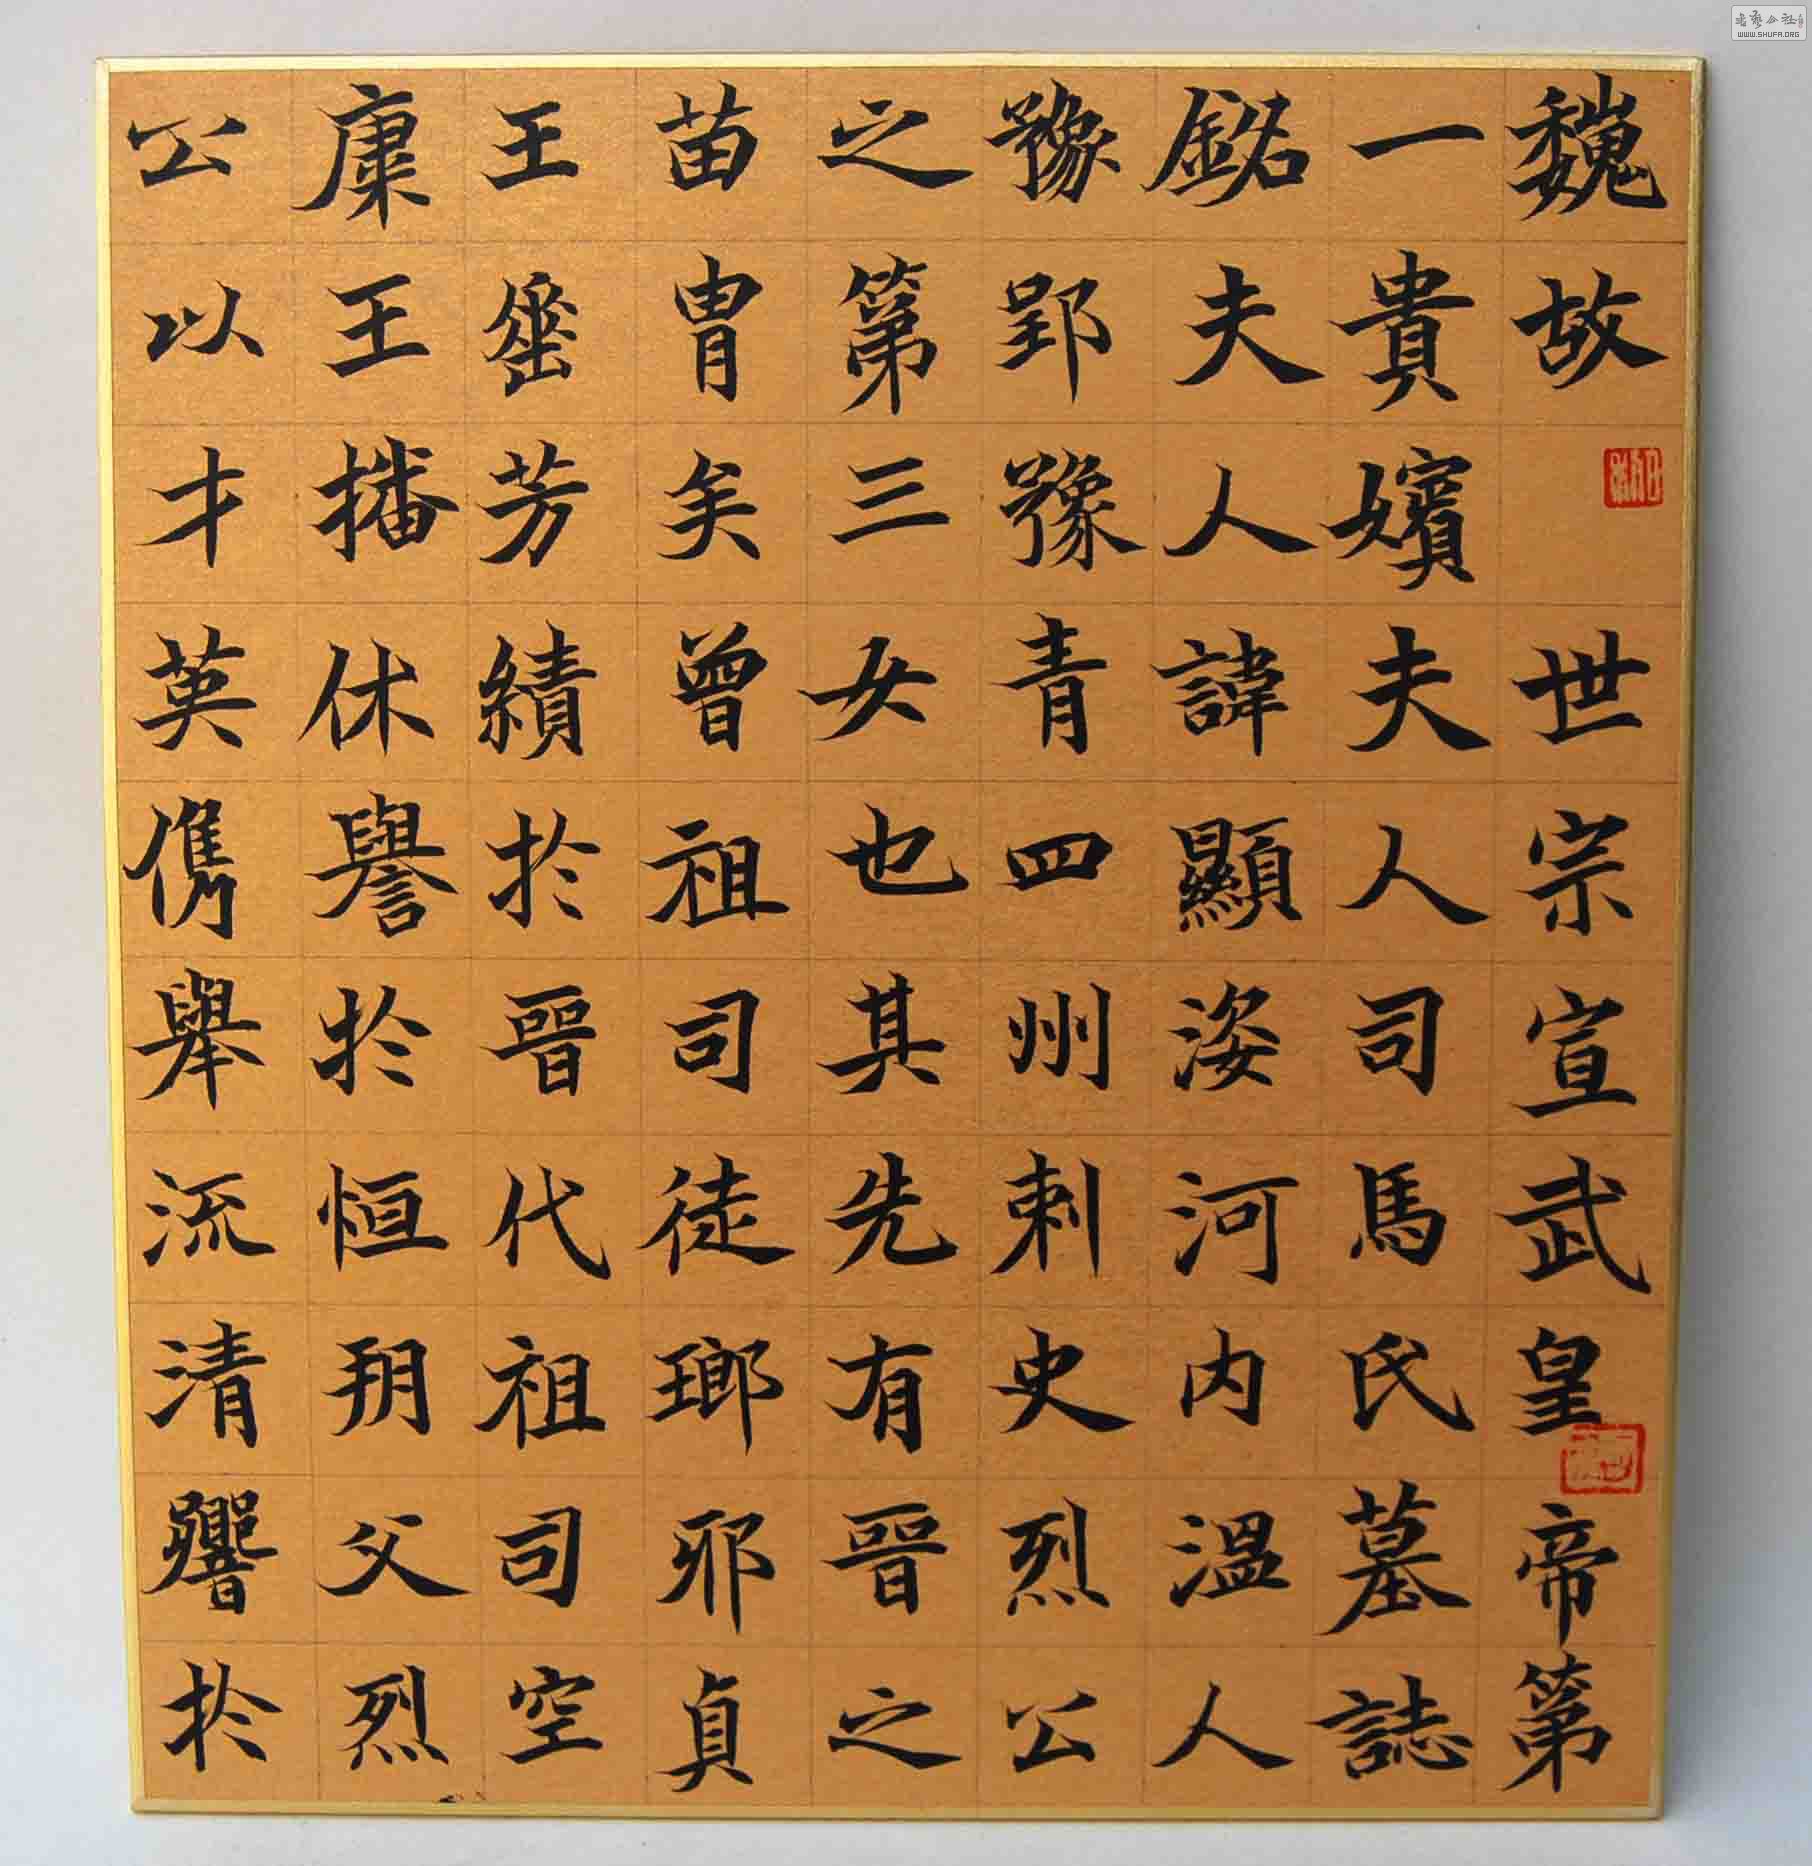 魏故世宗宣武皇帝第
一貴嬪夫人司馬氏墓誌
銘夫人諱顯姿河內溫人
豫郢豫青四州刺史烈公
之第三女也其先有晉之
苗胄矣曾祖司徒瑯耶貞
王壐芳績於晉代祖司空
康王王播休譽於恒朔父烈
公以才英儁舉流清響於
WWW.SHUFA.ORG